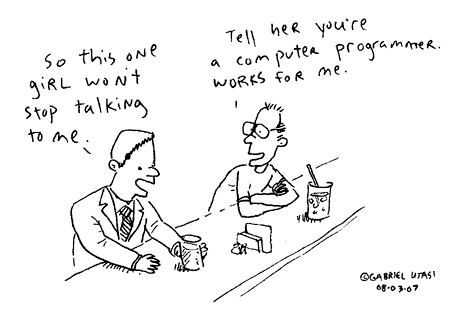 So this one
girl won't
stop talking
to me.
Tell her you're
a computer programmer.
works for me.
©GABRIEL UTASI
08·03·07